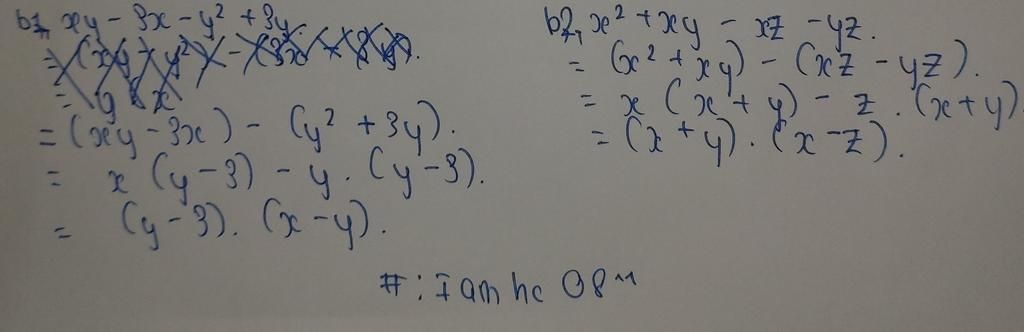 b1, xy - 3x - y² + 3y.
= (xy - y²) - (3x + 3y).
= y x
= (xy - 3x) - (y² + 3y).
= x (y - 3) - y . (y - 3).
= (y - 3) . (x - y).
b2, x² + xy - xz - yz.
= (x² + xy) - (xz - yz).
= x (x + y) - z . (x + y)
= (x + y) . (x - z).
# : I am hc 08